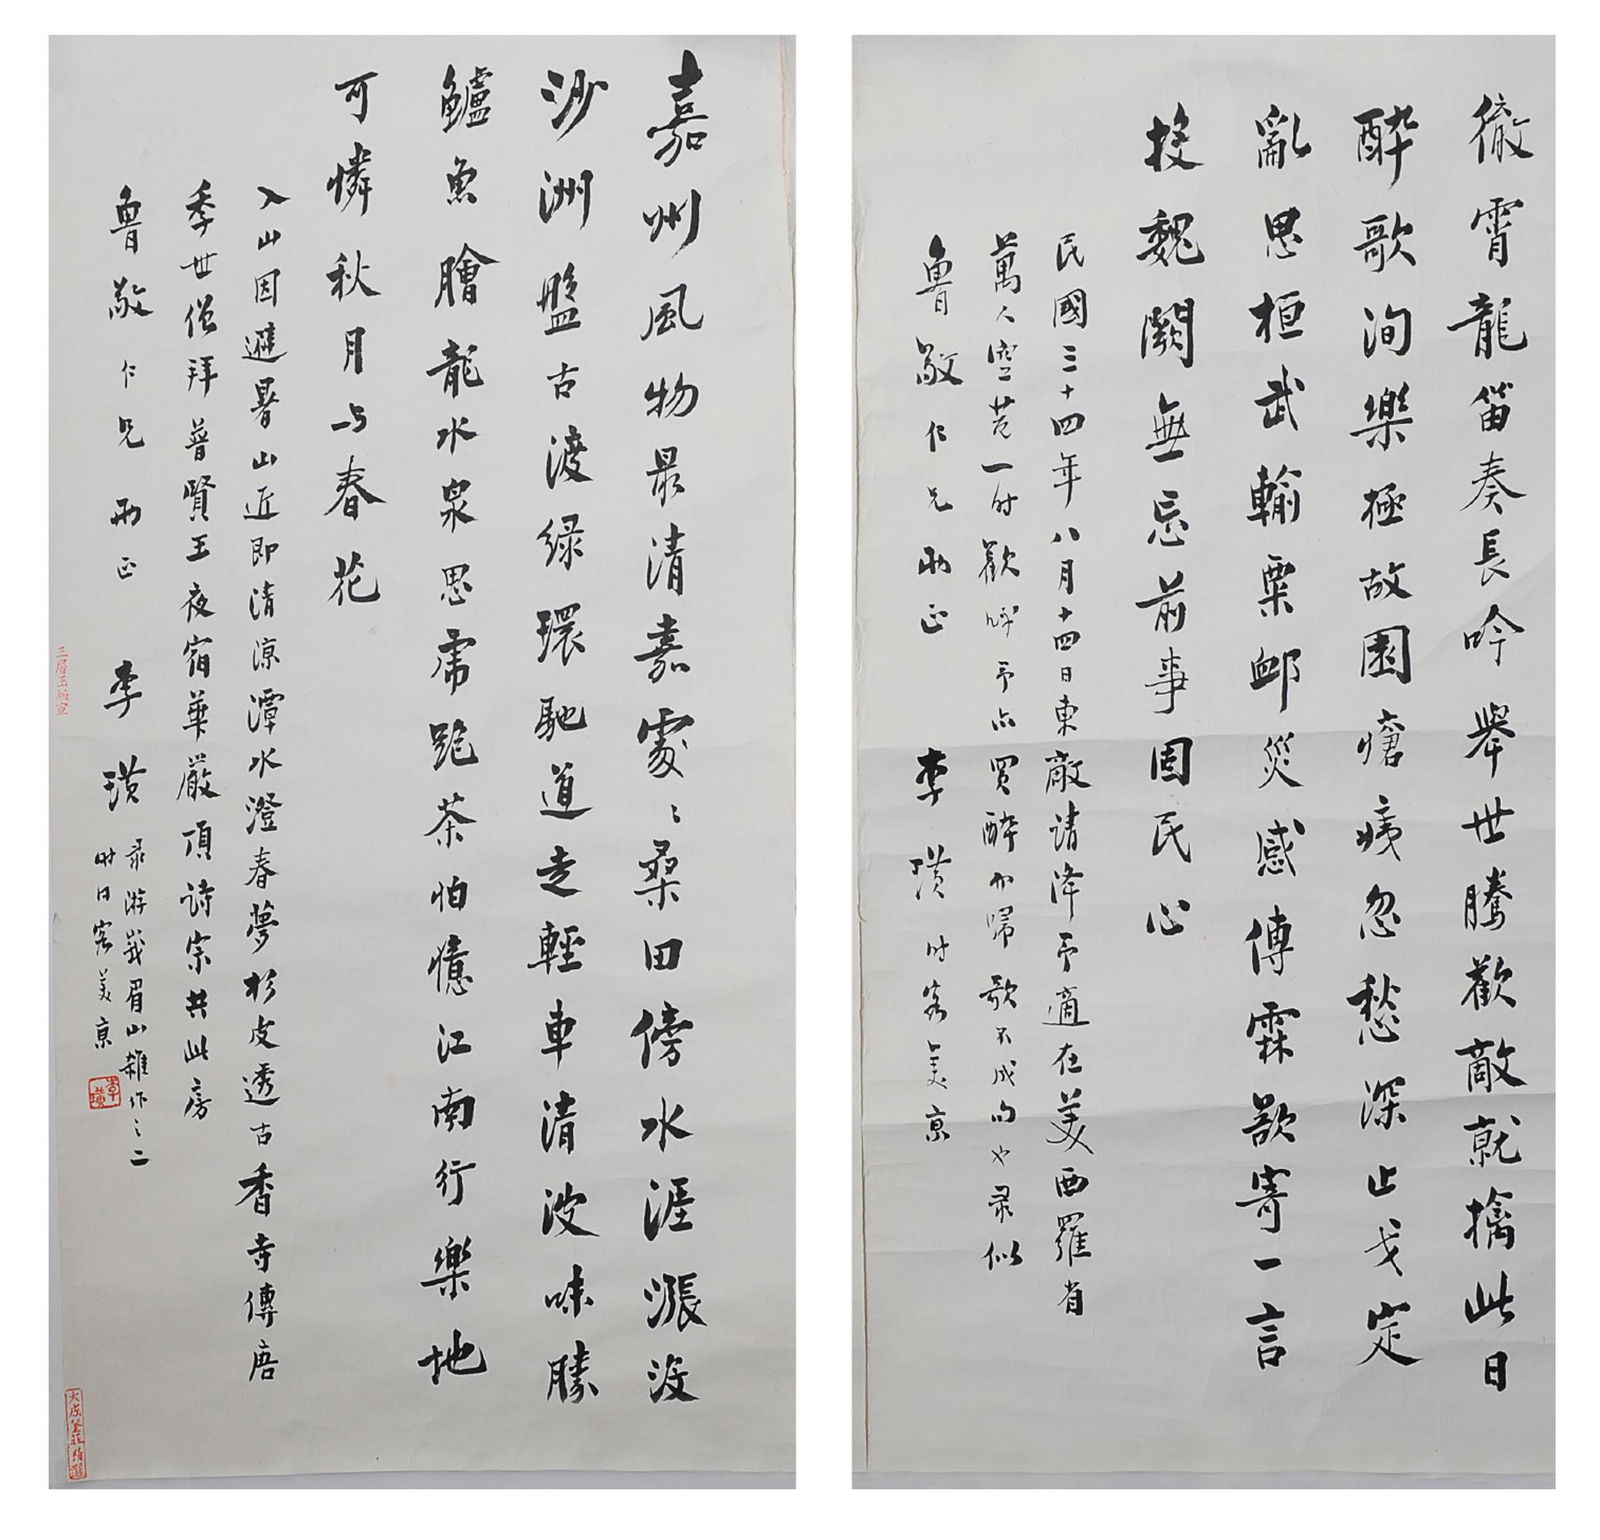 徹霄龍笛奏長吟舉世騰歡敵就擒此日
醉歌洵樂極故園瘡痍忽愁深止戈定
亂思桓武輸粟卹災感傅霖歌寄一言
投魏闕無忘前事固民心
民國三十四年八月十四日東敵請降予適在美西羅省
萬人空巷一時歡呼予亦買醉而歸歌不成句也录似
魯敬仁兄兩正 李璜 时客美京
嘉州風物最清嘉處處桑田傍水涯漲沒
沙洲盤古渡綠環馳道走輕車清波味勝
鱸魚膾龍水泉思虎跑茶怕憶江南行樂地
可憐秋月与春花
入山因避暑山近即清涼潭水澄春夢杉皮透古香寺傳唐
季世僧拜普賢王夜宿華嚴頂詩宗共此房
魯敬仁兄兩正 李璜 录游峨眉山雜作之二
时同客美京
李璜
三層玉版宣